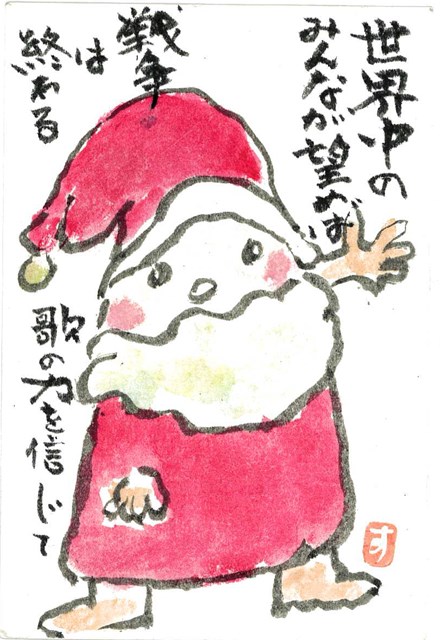 世界中の
みんなが望めば
戦争
は
終わる
歌の力を信じて
す